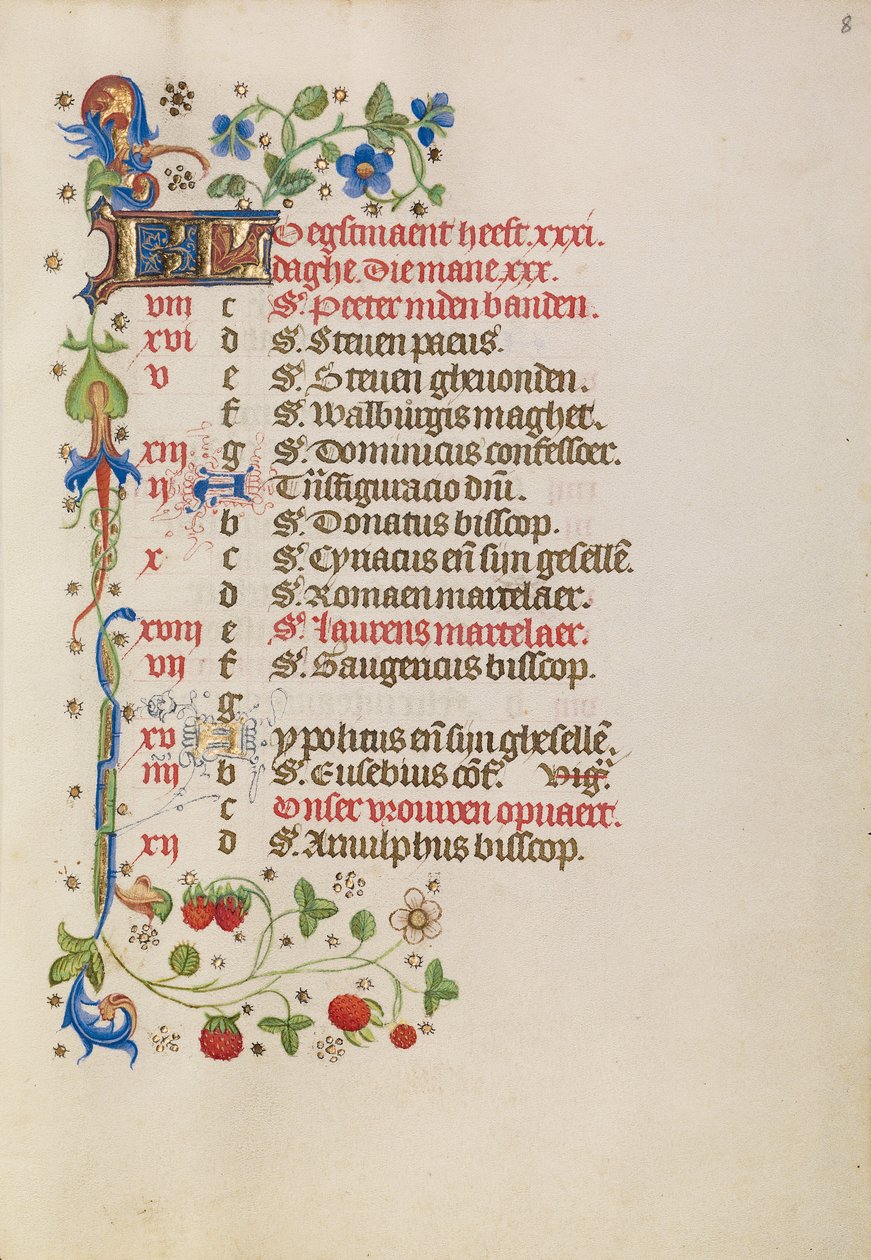 8
KL Oegstmaent heeft .xxxi.
daghe. Die mane xxx.
viii c S. Peeter inden banden.
xvi d S. Steuen paeus.
v e S. Steuen gheuonden.
f S. Walburgis maghet.
xiii g S. Dominicus confessoer.
ii A Tnsfiguracio dni.
b S. Donatus bisscop.
x c S. Cyriacus en sijn gesellē.
d S. Romaen martelaer.
xviii e S. Laurens martelaer.
vii f S. Gaugericus bisscop.
g
xv A ypolitus en sijn ghesellē.
iiii b S. Eusebius cōf. Vig.
c Onser vrouwen opuaert.
xii d S. Arnulphus bisscop.